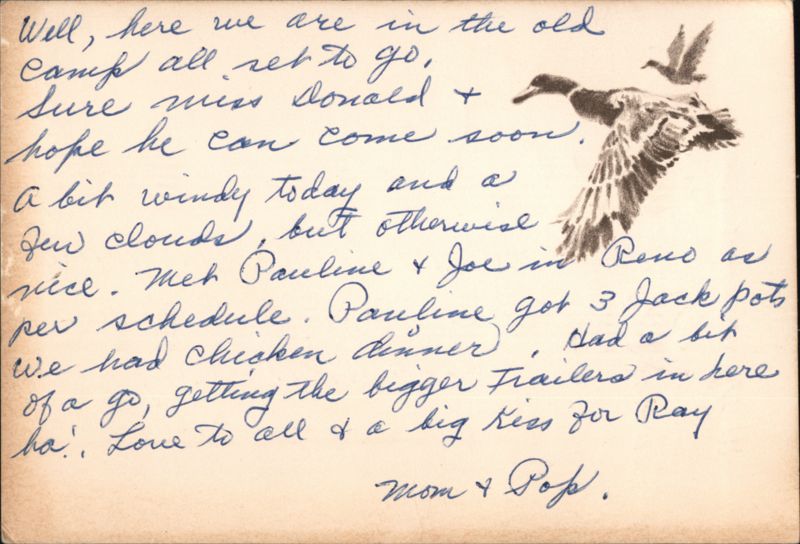 Well, here we are in the old
camp all set to go.
Sure miss Donald +
hope he can come soon.
A bit windy today and a
few clouds, but otherwise
nice. Met Pauline + Joe in Reno as
per schedule. Pauline got 3 Jack pots
we had chicken dinner, Had a bit
of a go, getting the bigger Trailers in here
ha!. Love to all + a big Kiss for Ray
Mom + Pop.